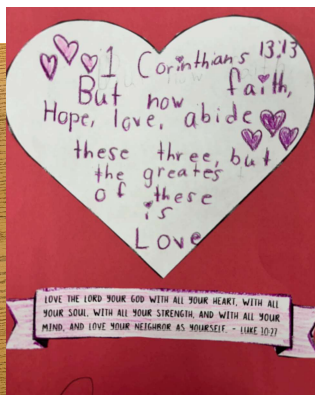 1 Corinthians 13:13
But now faith,
Hope, love, abide
these three, but
the greates
of these
is
Love
LOVE THE LORD YOUR GOD WITH ALL YOUR HEART, WITH ALL
YOUR SOUL, WITH ALL YOUR STRENGTH, AND WITH ALL YOUR
MIND, AND LOVE YOUR NEIGHBOR AS YOURSELF. - LUKE 10:27